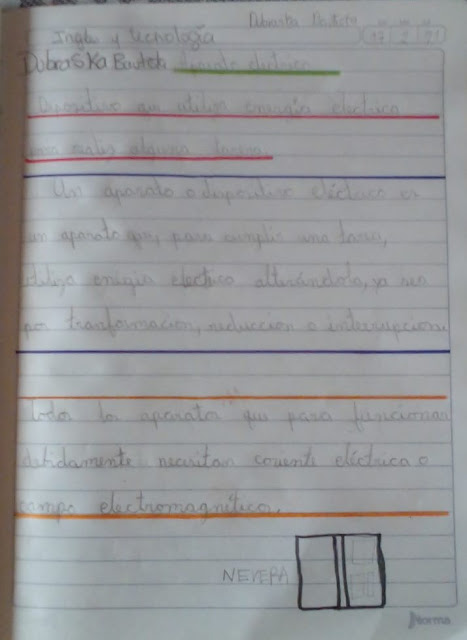 Dubraska Bautista
Ingles y tecnología
17 2 21
Dubraska Bautista Aparato electrico
Dispositivo que utiliza energía electrica
para realiz alguna tarea.
Un aparato o dispositivo eléctrico es
un aparato que, para cumplir una tarea,
utiliza energia electrica alterándola, ya sea
por tranformacion, reduccion o interrupcion.
Todos los aparatos que para funcionar
debidamente necesitan coriente eléctrica o
campo electromagnético.
NEVERA
Norma